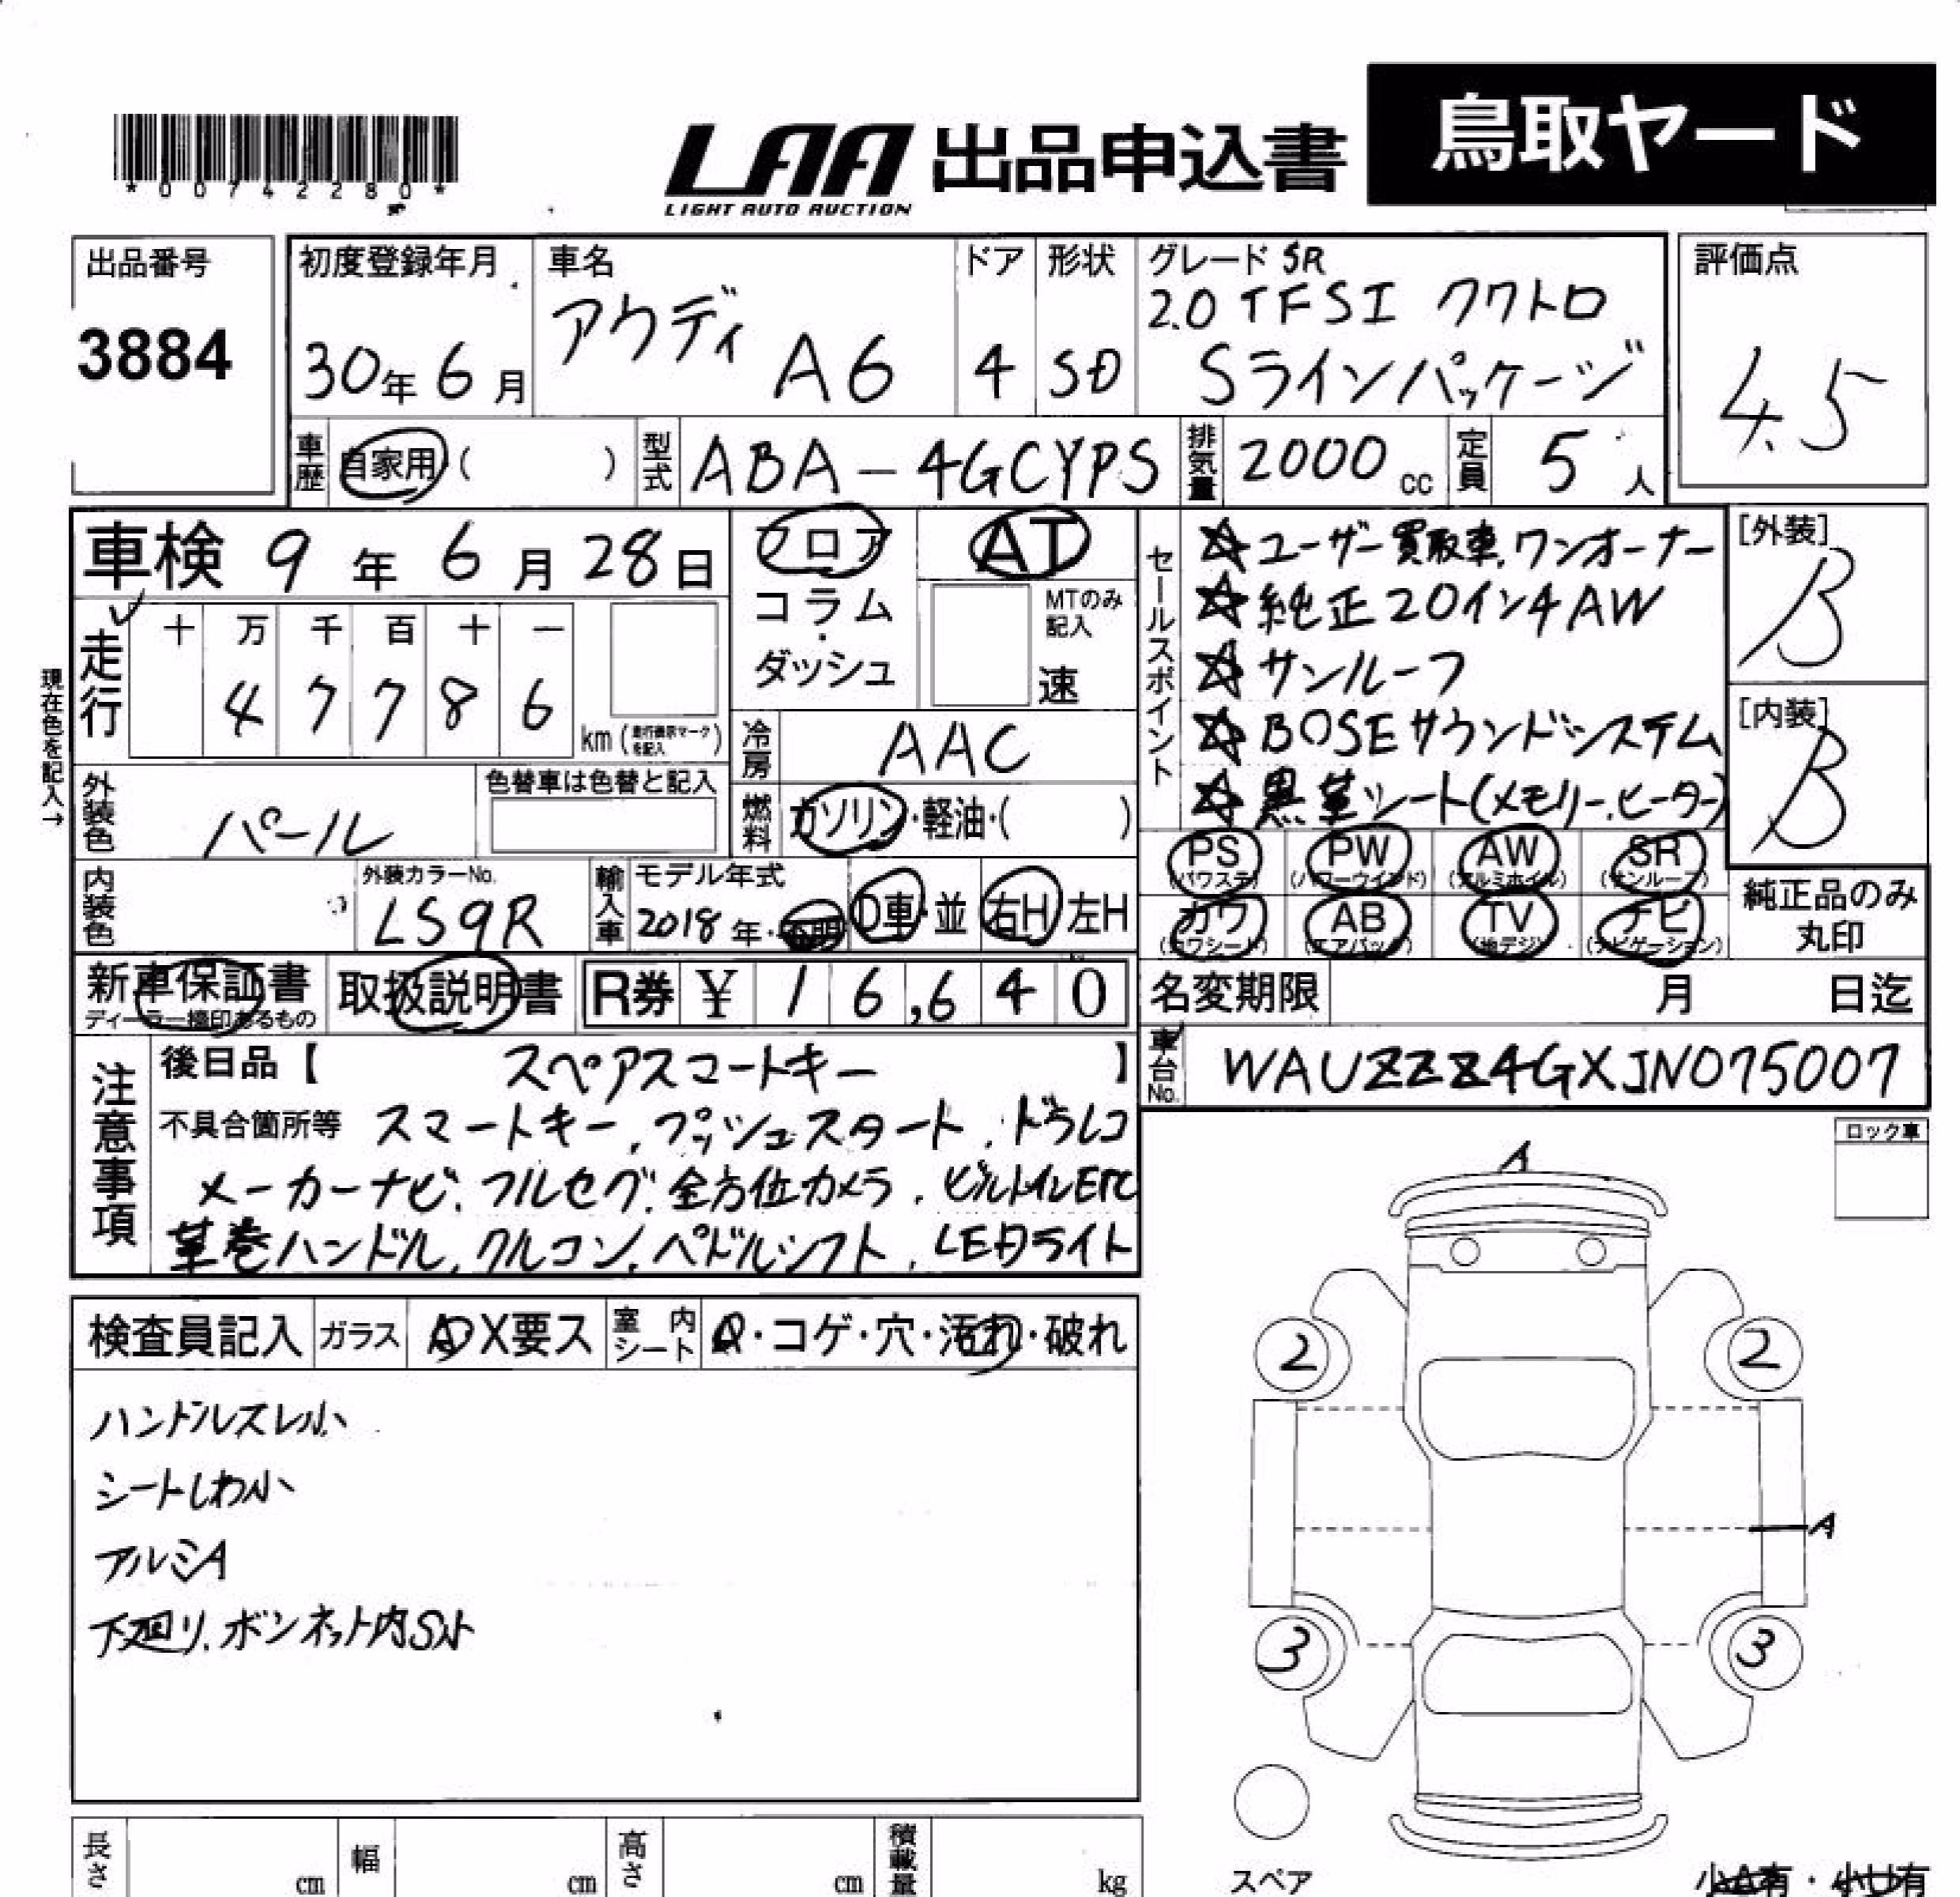 鳥取ヤード
*00742280*
LAA 出品申込書
LIGHT AUTO AUCTION
出品番号
3884
初度登録年月
30年6月
車名
アウディ A6
ドア
4
形状
SD
グレード SR
2.0 TFSI クワトロ
Sラインパッケージ
評価点
4.5
車歴
自家用( )
型式
ABA-4GCYPS
排気量
2000cc
定員
5人
車検 9年6月28日
フロア
コラム・ダッシュ
AT
MTのみ記入
速
現在色を記入→
走行
十 万 千 百 十 一
4 7 7 8 6
km(走行表示マークを記入)
冷房
AAC
外装色
パール
色替車は色替と記入
燃料
ガソリン・軽油・( )
内装色
外装カラーNo.
LS9R
輸入車
モデル年式
2018年・不明
D車・並
右H 左H
セールスポイント
☆ユーザー買取車、ワンオーナー
☆純正20インチAW
☆サンルーフ
☆BOSEサウンドシステム
☆黒革シート(メモリー、ヒーター)
[外装]
B
[内装]
B
PS (パワステ)
PW (パワーウインド)
AW (アルミホイル)
SR (サンルーフ)
カワ (カワシート)
AB (エアバック)
TV (地デジ)
ナビ (ナビゲーション)
純正品のみ丸印
新車保証書
ディーラー捺印あるもの
取扱説明書
R券 ¥16,640
名変期限 月 日迄
車台No.
WAUZZZ4GXJN075007
注意事項
後日品【 スペアスマートキー 】
不具合箇所等 スマートキー、プッシュスタート、ドラレコ
メーカーナビ、フルセグ、全方位カメラ、ビルトインETC
革巻ハンドル、クルコン、ペドルシフト、LEDライト
ロック車
検査員記入
ガラス
A X要ス
室内シート
・コゲ・穴・汚れ・破れ
ハンドルスレ小
シートしわ小
アルミA
下廻り、ボンネット内S小
A
2
2
A
3
3
スペア
小A有・小U有
長さ cm
幅 cm
高さ cm
積載量 kg